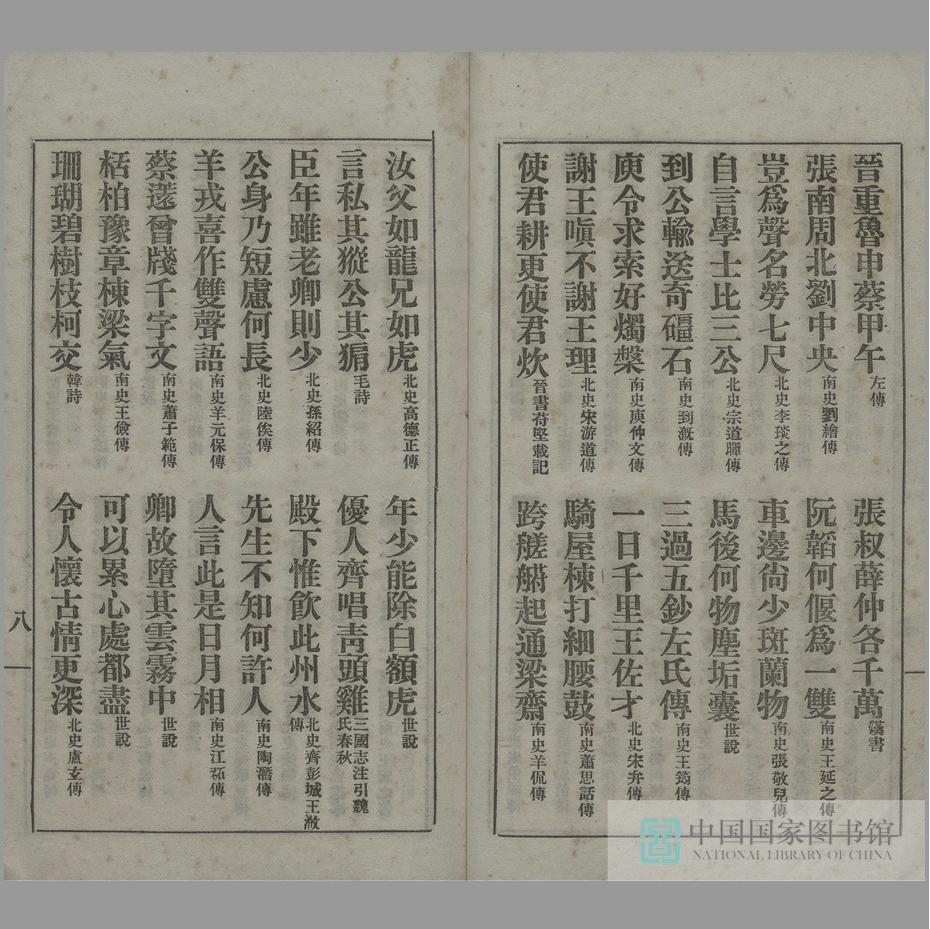 晉重魯申蔡甲午左傳 張叔薛仲各千萬漢書
張南周北劉中央南史劉繪傳 阮韜何偃爲一雙南史王延之傳
豈爲聲名勞七尺北史李琰之傳 車邊尙少斑蘭物南史張敬兒傳
自言學士比三公北史宗道暉傳 馬後何物塵垢囊世說
到公輸送奇礓石南史到漑傳 三過五鈔左氏傳南史王筠傳
庾令求索好燭槃南史庾仲文傳 一日千里王佐才北史宋弁傳
謝王嗔不謝王理北史宋游道傳 騎屋棟打細腰鼓南史蕭思話傳
使君耕更使君炊晉書苻堅載記 跨艖艒起通梁齋南史羊侃傳
汝父如龍兄如虎北史高德正傳 年少能除白額虎世說
言私其豵公其豜毛詩 優人齊唱靑頭雞三國志注引魏氏春秋
臣年雖老卿則少北史孫紹傳 殿下惟飮此州水北史齊彭城王浟傳
公身乃短慮何長北史陸俟傳 先生不知何許人南史陶潛傳
羊戎喜作雙聲語南史羊元保傳 人言此是日月相南史江祏傳
蔡薳曾牋千字文南史蕭子範傳 卿故墮其雲霧中世說
栝柏豫章棟梁氣南史王儉傳 可以累心處都盡世說
珊瑚碧樹枝柯交韓詩 令人懷古情更深北史盧玄傳
八
中国国家图书馆
NATIONAL LIBRARY OF CHINA